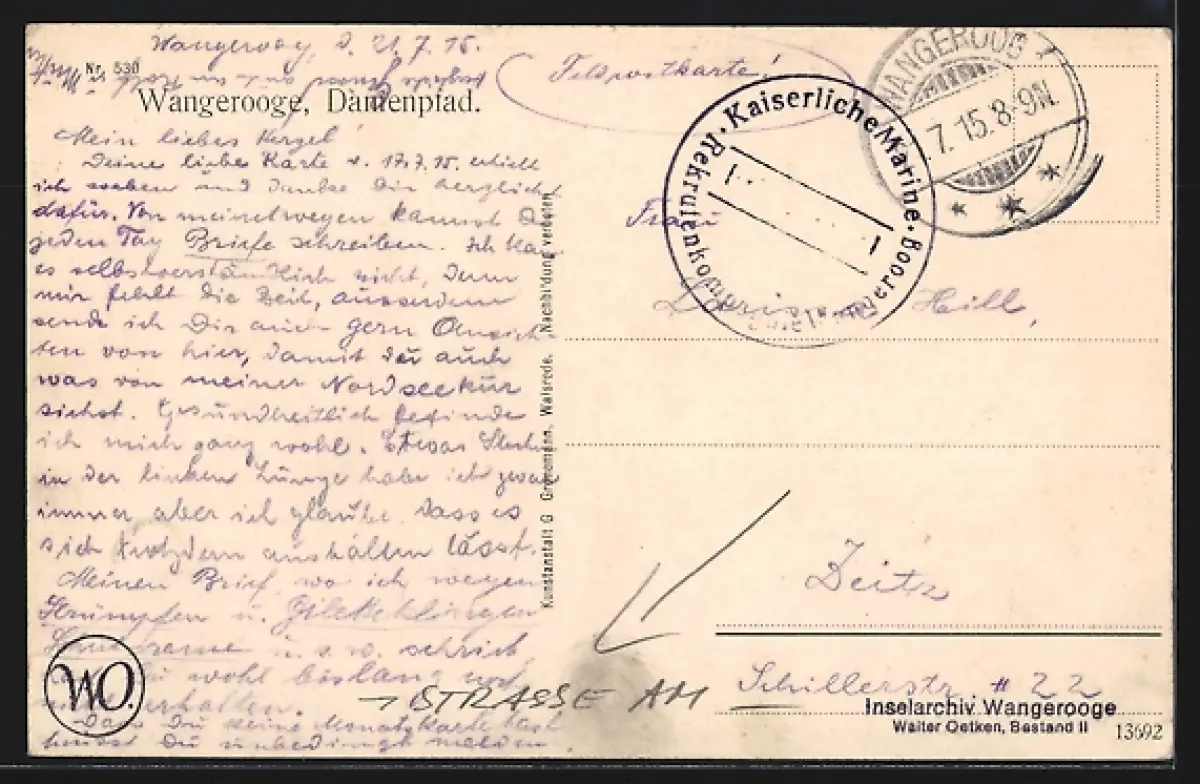 Wangeroog, d. 21.7.15.
Nr. 530
Wangerooge, Damenpfad.
Mein liebes Herzel!
Deine liebe Karte v. 17.7.15. erhielt
ich soeben und danke Dir herzlichst
dafür. Von meinetwegen kannst Du
jeden Tag Briefe schreiben. Ich
es selbstverständlich nicht, denn
mir fehlt die Zeit, ausserdem
sende ich Dir auch gern Ansich-
ten von hier, damit du auch
was von meiner Nordseekur
siehst. Gesundheitlich befinde
ich mich ganz wohl. Etwas
in der linken Lunge habe ich zwar
immer aber ich glaube dass es
sich trotzdem aushalten lässt.
Meinen Brief, wo ich wegen
Strümpfen u.
u.s.w. schrieb
wohl bislang
erhalten.
Dass Du keine Monatskarte hast
Du unbedingt melden
WO.
Kunstanstalt G. Grönemann, Walsrode. Nachbildung verboten.
Feldpostkarte!
Kaiserliche Marine
Rekruten
WANGEROOG
7.15.8-9N.
Frau
Hill,
Deitz
Schillerstr # 22
→ STRASSE AM
Inselarchiv Wangerooge
Walter Oetken, Bestand II
13692